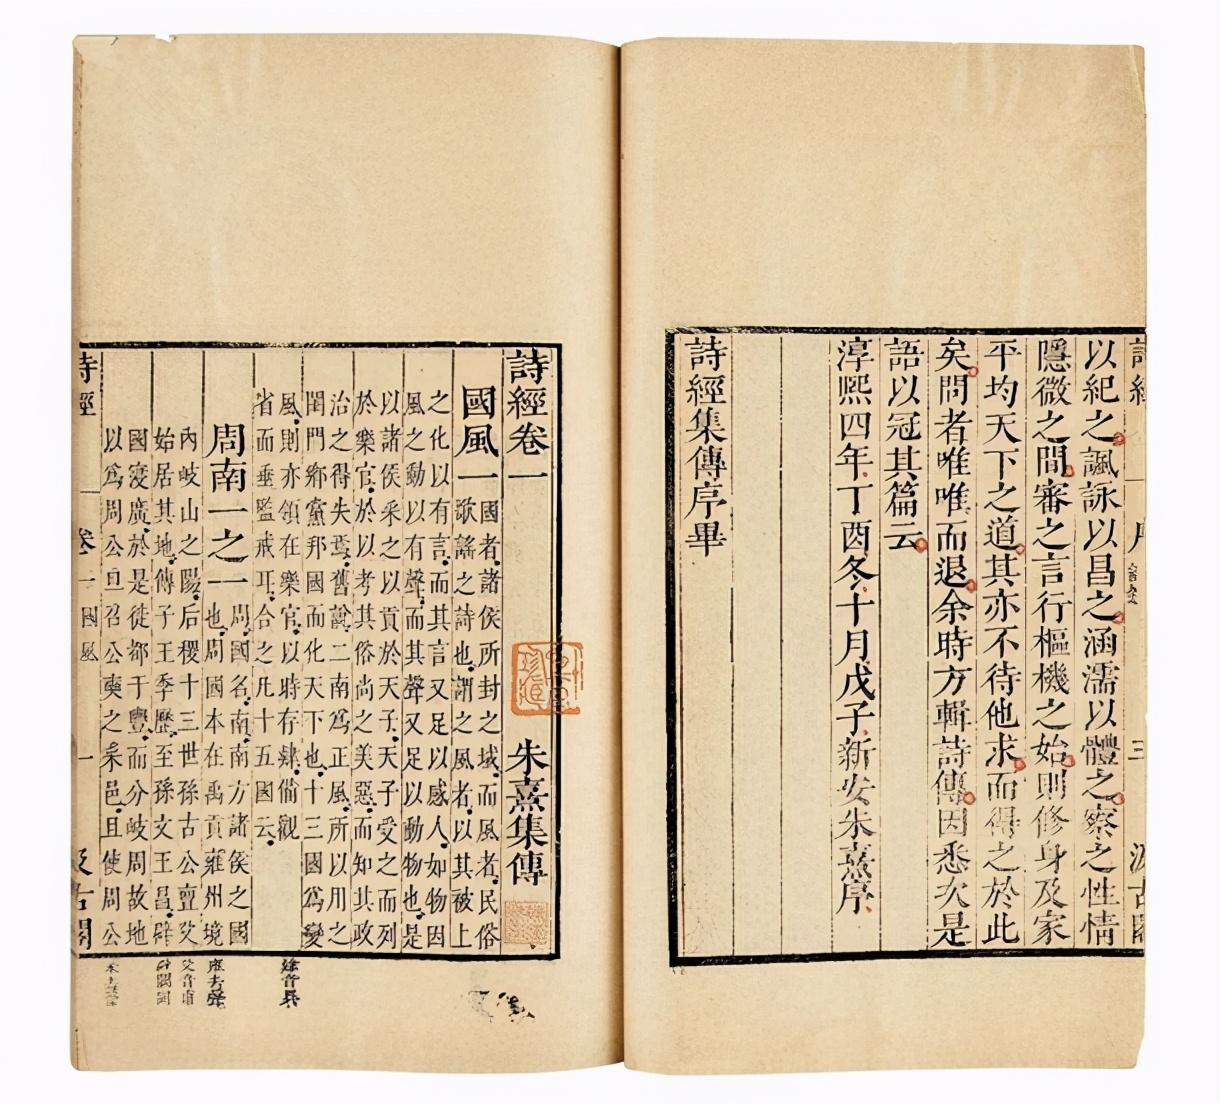 詩經 序 三 汲古閣
以紀之諷詠以昌之涵濡以體之察之性情
隱微之間審之言行樞機之始則修身及家
平均天下之道其亦不待他求而得之於此
矣問者唯唯而退余時方輯詩傳因悉次是
語以冠其篇云
淳熙四年丁酉冬十月戊子新安朱熹序
詩經集傳序畢
詩經卷一 朱熹集傳
國風一 國者諸侯所封之域而風者民俗
歌謠之詩也謂之風者以其被上
之化以有言而其言又足以感人如物因
風之動以有聲而其聲又足以動物也是
以諸侯采之以貢於天子天子受之而列
於樂官於以考其俗尚之美惡而知其政
治之得失焉舊說二南爲正風所以用之
閨門鄉黨邦國而化天下也十三國爲變
風則亦領在樂官以時存肄備觀
省而垂監戒耳合之凡十五國云
周南一之一 周國名南南方諸侯之國
也周國本在禹貢雍州境
內岐山之陽后稷十三世孫古公亶父
始居其地傳子王季歷至孫文王昌辟
國寖廣於是徙都于豐而分岐周故地
以爲周公旦召公奭之采邑且使周公
詩經 卷一 國風 一 汲古閣
雍去聲
父音甫